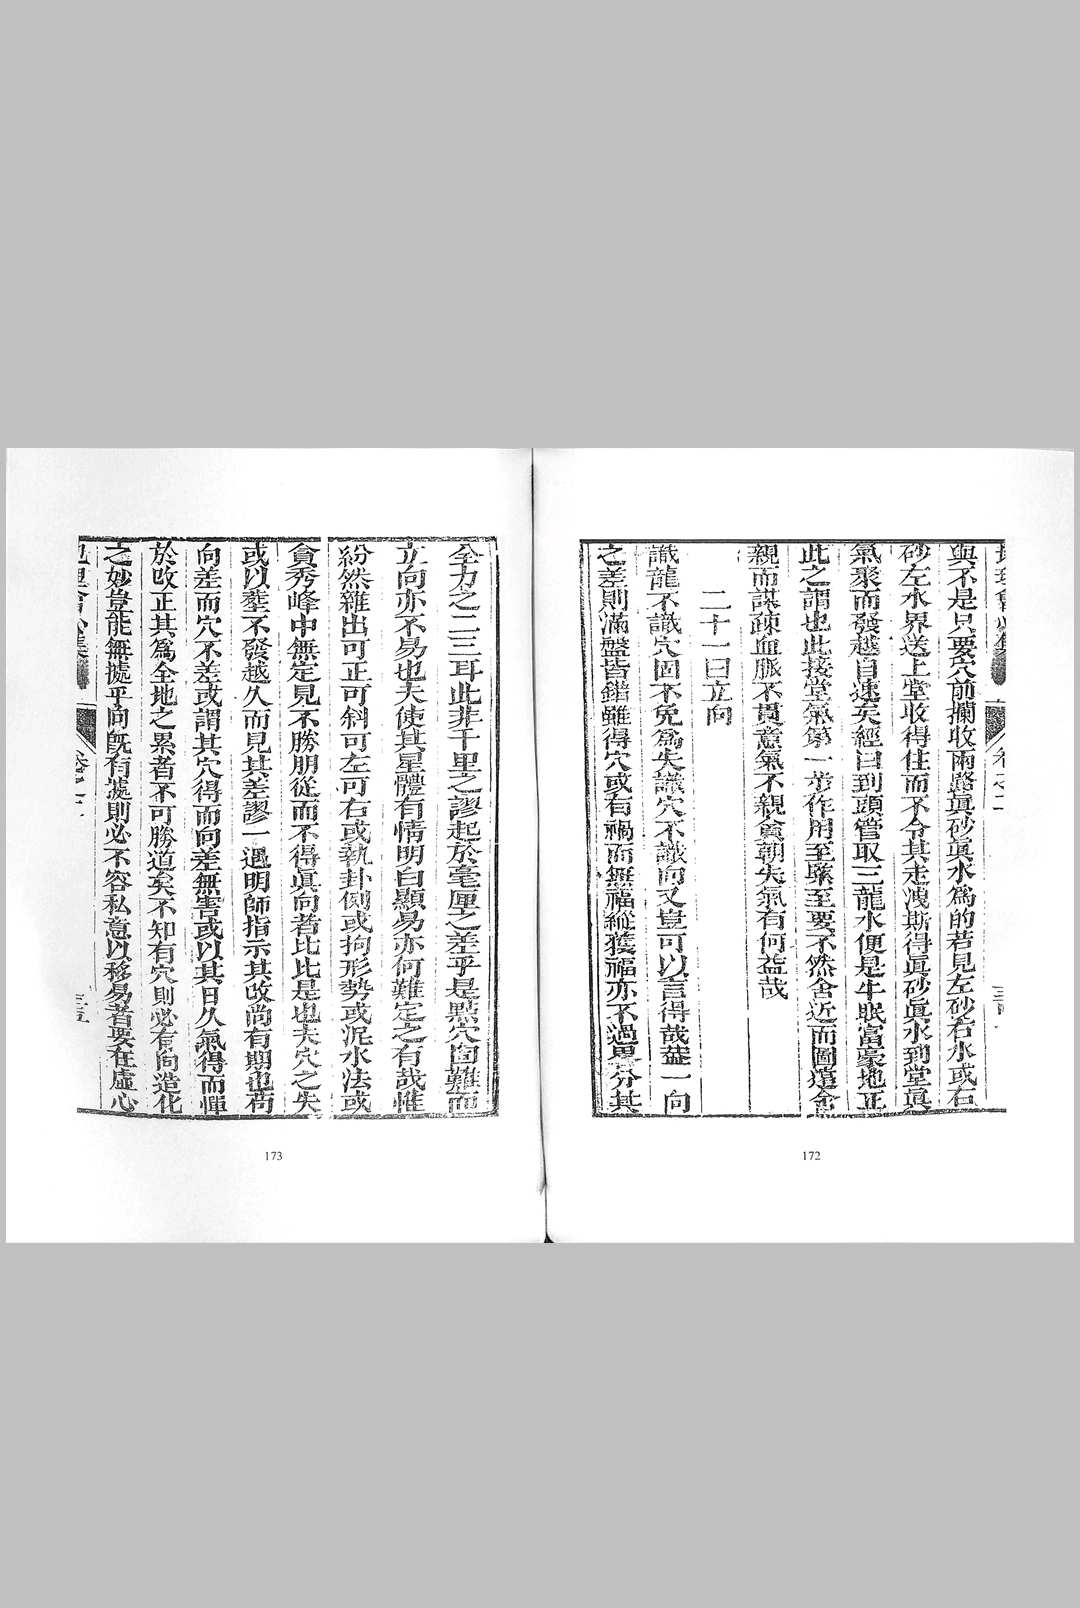 與不是只要穴前攔收兩路眞砂眞水爲的若見左砂右水或右
砂左水界送上堂收得住而不令其走洩斯得眞砂眞水到堂眞
氣聚而發越自速矣經曰到頭管取三龍水便是牛眠富豪地正
此之謂也此接堂氣第一步作用至緊至要不然舍近而圖遠舍
親而謀疎血脈不貫意氣不親貪朝失氣有何益哉
二十一曰立向
識龍不識穴固不免爲失識穴不識向又豈可以言得哉葢一向
之差則滿盤皆錯雖得穴或有禍而無福縱獲福亦不過畧分其
卷之二
172
全力之二三耳此非千里之謬起於毫厘之差乎是點穴固難而
立向亦不易也夫使其星體有情明白顯易亦何難定之有哉惟
紛然雜出可正可斜可左可右或執卦例或拘形勢或泥水法或
貪秀峰中無定見不勝朋從而不得眞向者比比是也夫穴之失
或以塟不發越久而見其差謬一遇明師指示其攺尚有期也苟
向差而穴不差或謂其穴得而向差無害或以其日久氣得而憚
於攺正其爲全地之累者不可勝道矣不知有穴則必有向造化
之妙豈能無據乎向旣有處則必不容私意以移易者要在虛心
三五
173